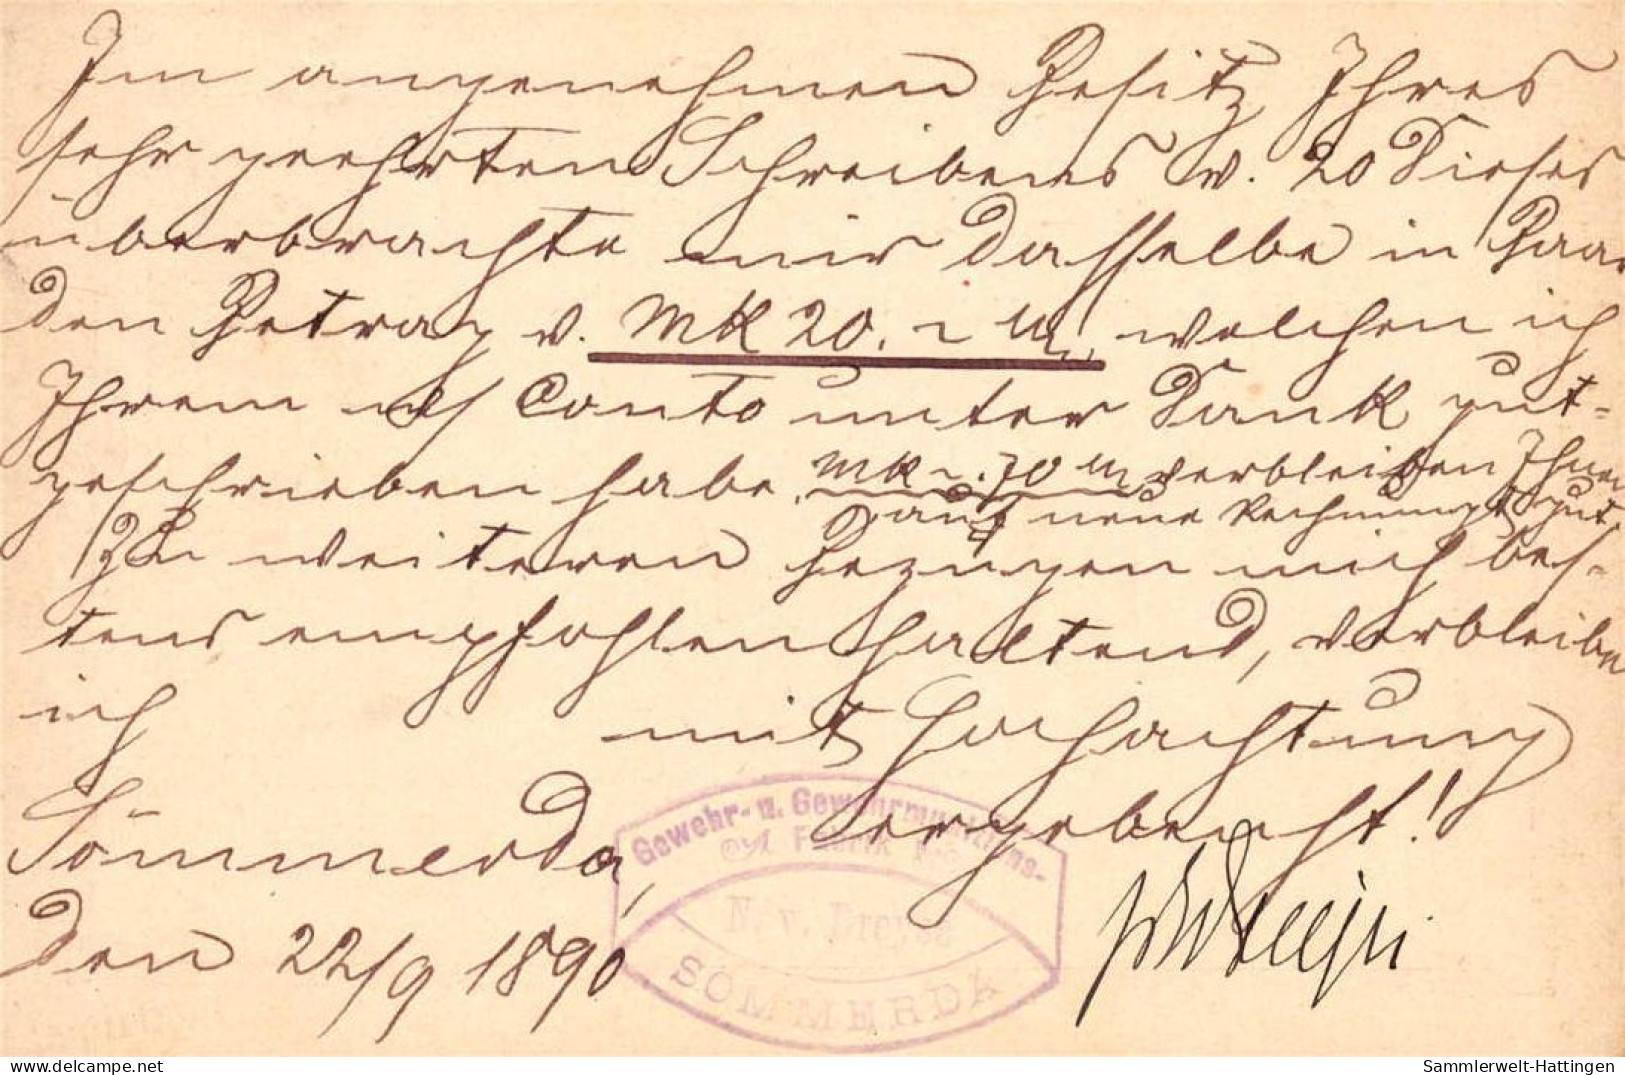 Im angenehmen Besitz Ihres
sehr geehrten Schreibens v. 20 Dieses
überbrachte mir dasselbe in Baar
den Betrag v. Mk 20. ~ welchen ich
Ihrem Conto unter Dank gut-
geschrieben habe, Mk ~.70 verbleiben Ihnen
auf neue Rechnung gut.
Zu weiteren Bezügen mich bes-
tens empfohlen haltend, verbleibe
ich mit Hochachtung
ergebenst!
Sömmerda,
den 22/9 1890
Gewehr- u. Gewehrmunitions-
Fabrik
N. v. Dreyse
SÖMMERDA
delcampe.net
Sammlerwelt-Hattingen